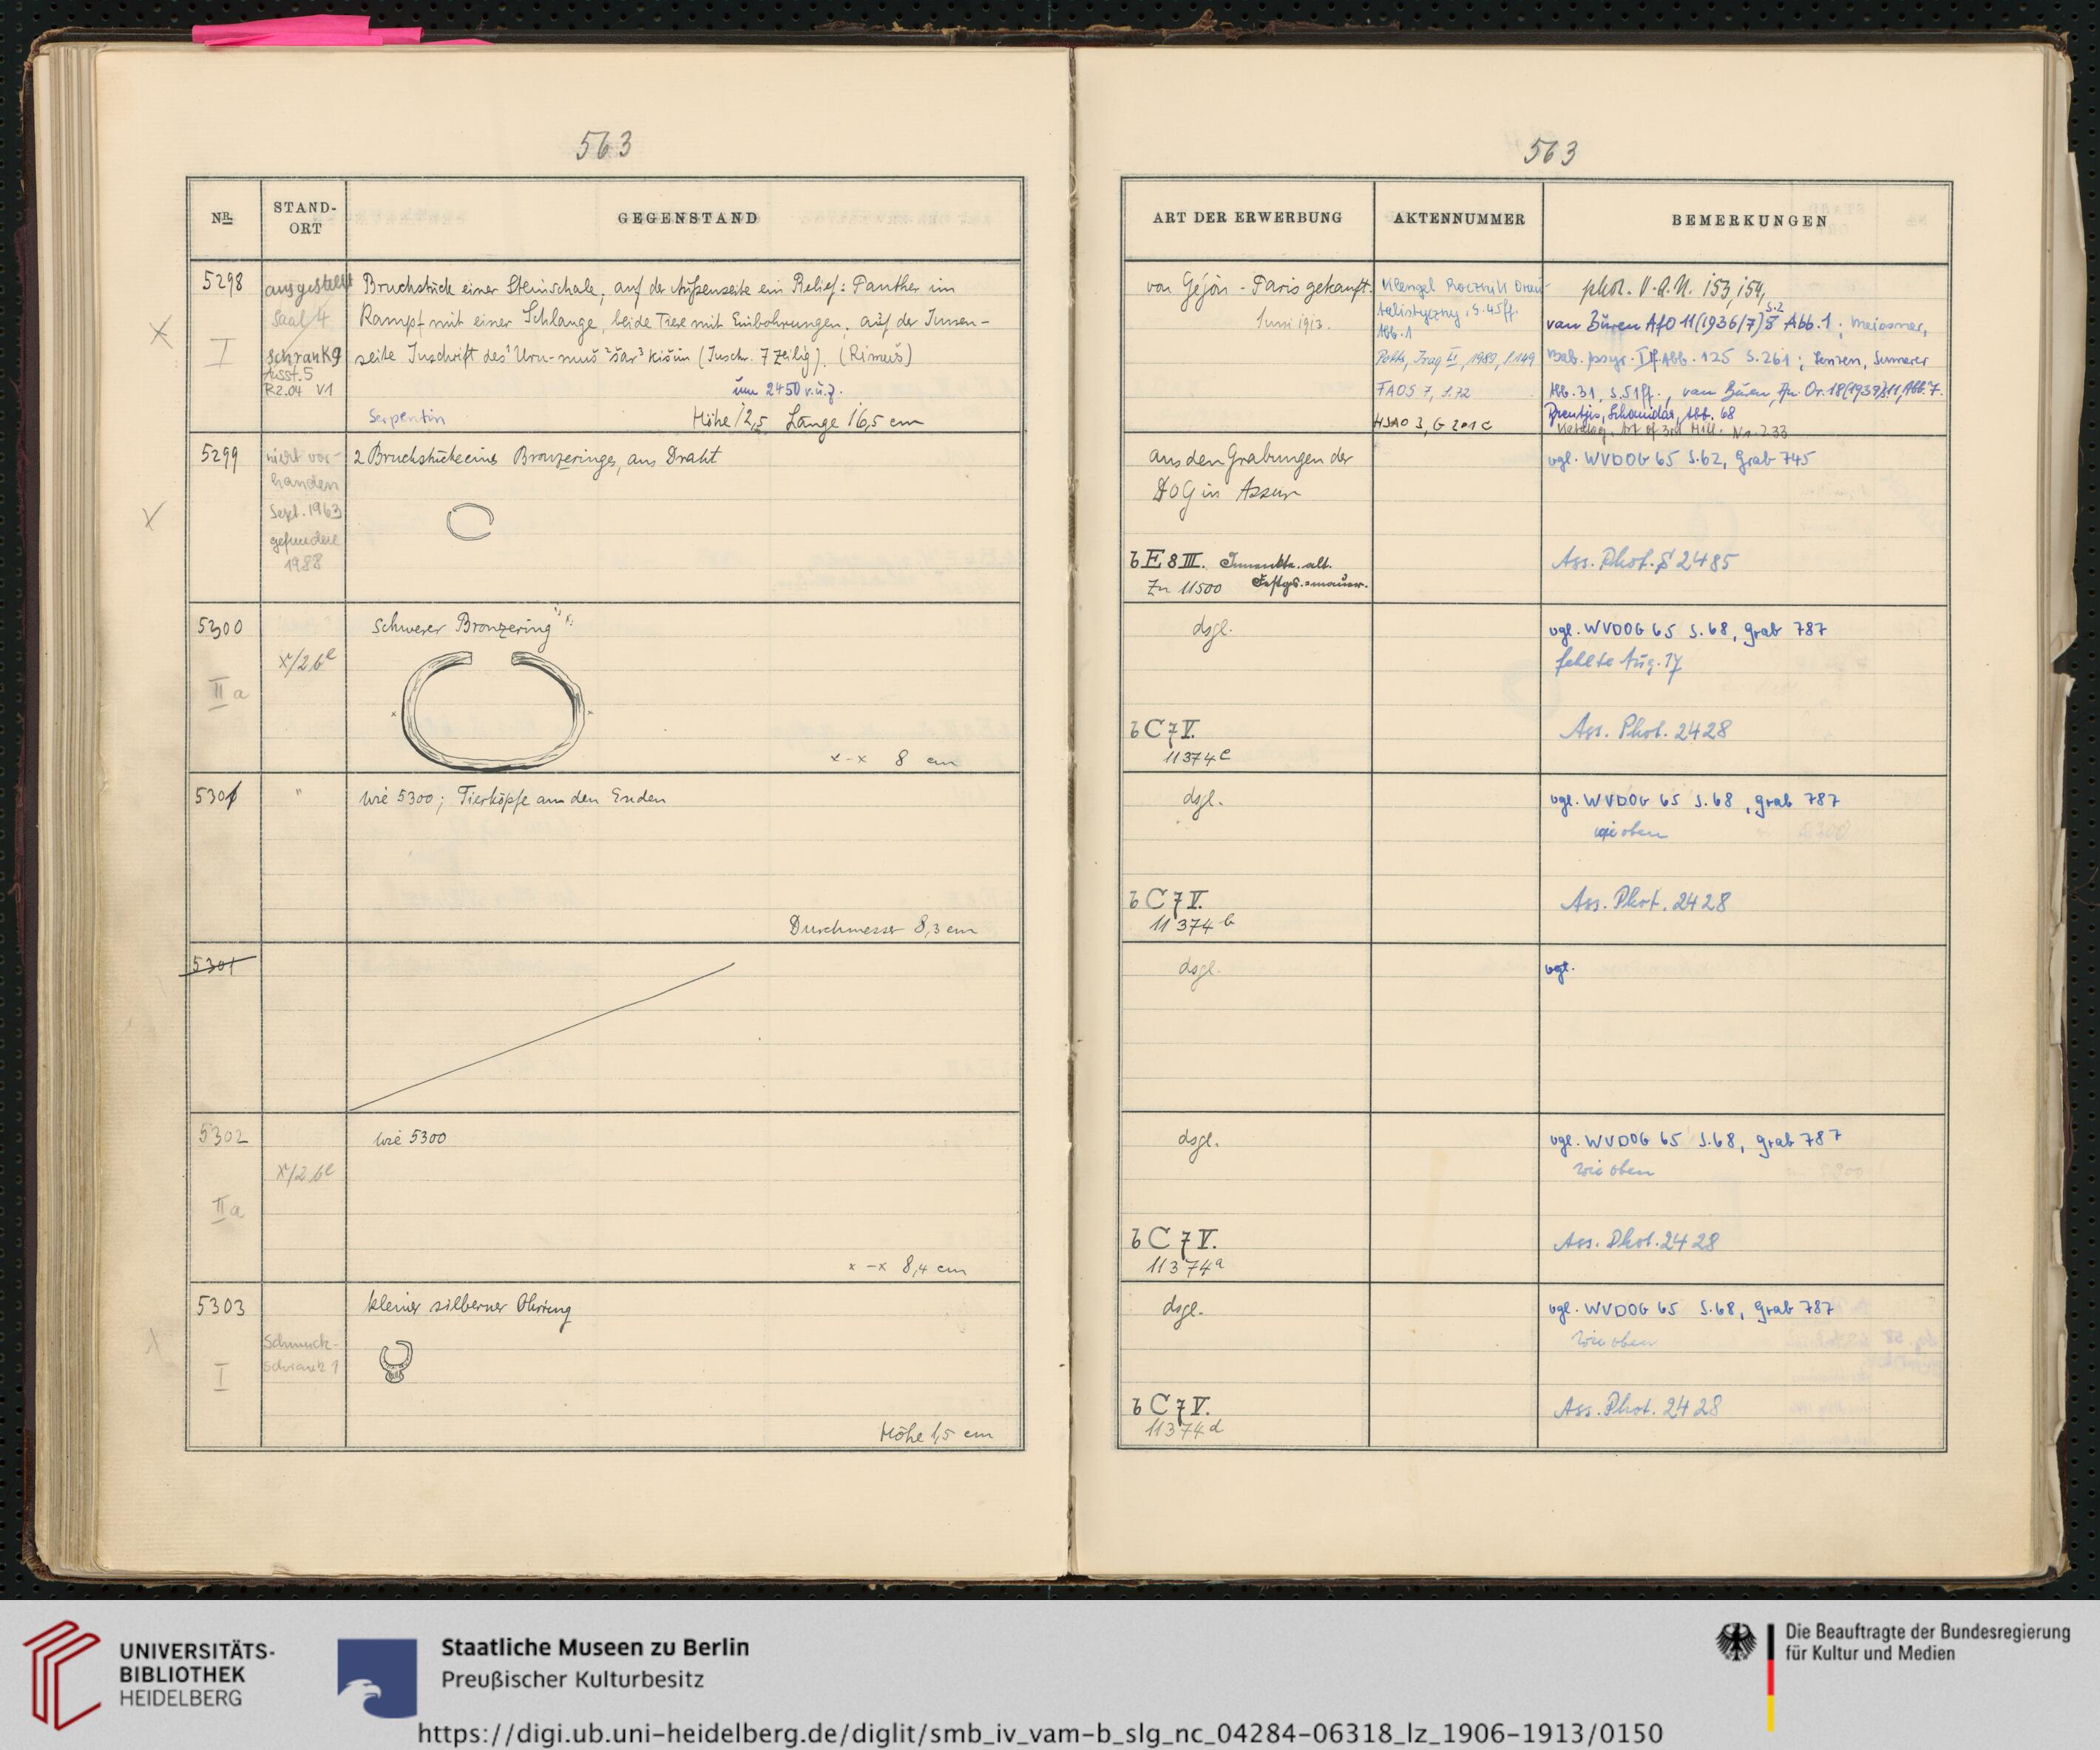 563
NR.
STAND-
ORT
GEGENSTAND
5298
ausgestellt
Saal 4
Schrank 9
Ausst. 5
R2.04 V1
I
Bruchstück einer Steinschale, auf der Außenseite ein Relief: Panther im
Kampf mit einer Schlange, beide Tiere mit Einbohrungen, auf der Innen-
seite Inschrift des ¹Uru-muš ²šar ³kišim (Inschr. 7 zeilig). (Rimuš)
um 2450 v.u.Z.
Serpentin
Höhe 12,5 Länge 16,5 cm
5299
nicht vor-
handen
Sept. 1963
gefunden
1988
2 Bruchstücke eines Bronzeringes, aus Draht
5300
x/2 b e
II a
Schwerer Bronzering
x-x 8 cm
5301
"
wie 5300; Tierköpfe an den Enden
Durchmesser 8,3 cm
5301
5302
x/2 b e
II a
wie 5300
x-x 8,4 cm
5303
Schmuck-
schrank 1
I
kleiner silberner Ohrring
Höhe 1,5 cm
563
ART DER ERWERBUNG
AKTENNUMMER
BEMERKUNGEN
von Géjou - Paris gekauft.
Juni 1913.
Klengel Rocznik Orien-
talistyczny, S. 45 ff.
Abb. 1
Potts, Iraq LI, 1989, S. 149
FAOS 7, S. 72
HSAO 3, G 201 c
phot. V.A.N. 153, 154,
van Buren AfO 11 (1936/7) S. 2 Abb. 1; Meissner,
Bab. Assyr. II Abb. 125 S. 261; Lenzen, Sumerer
Abb. 31, S. 51 ff., van Buren, An. Or. 18 (1939) S. 11, Abb. 7.
Brentjes, Schanidar, Abb. 68
Katalog, Art of 3rd Mill. Nr. 233
aus den Grabungen der
DOG in Assur
b E 8 III. Innenkte. alt.
Festgs.=mauer.
Zn 11500
vgl. WVDOG 65 S. 62, Grab 745
Ass. Phot. S 2485
dsgl.
b C 7 V.
11374 c
vgl. WVDOG 65 S. 68, Grab 787
fehlte Aug. 17
Ass. Phot. 2428
dsgl.
b C 7 V.
11374 b
vgl. WVDOG 65 S. 68, Grab 787
wie oben
Ass. Phot. 2428
dsgl.
vgl.
dsgl.
b C 7 V.
11374 a
vgl. WVDOG 65 S. 68, Grab 787
wie oben
Ass. Phot. 2428
dsgl.
b C 7 V.
11374 d
vgl. WVDOG 65 S. 68, Grab 787
wie oben
Ass. Phot. 2428
UNIVERSITÄTS-
BIBLIOTHEK
HEIDELBERG
Staatliche Museen zu Berlin
Preußischer Kulturbesitz
Die Beauftragte der Bundesregierung
für Kultur und Medien
https://digi.ub.uni-heidelberg.de/diglit/smb_iv_vam-b_slg_nc_04284-06318_lz_1906-1913/0150